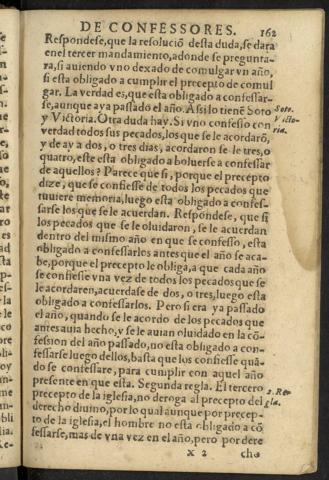 DE CONFESSORES. 162
Respondese, que la resoluciõ desta duda, se dara
en el tercer mandamiento, adonde se pregunta-
ra, si auiendo vno dexado de comulgar vn año,
si esta obligado a cumplir el precepto de comul
gar. La verdad es, que esta obligado a confessar-
se, aunque aya passado el año. Assi lo tienẽ Soto
Soto.
y Victoria. Otra duda hay. Si vno confesso con
Victo-
verdad todos sus pecados, los que se le acordarõ,
ria.
y de ay a dos, o tres dias, acordaron se le tres, o
quatro, este esta obligado a boluerse a confessar
de aquellos? Parece que si, porque el precepto
dize, que se confiesse de todos los pecados que
tuuiere memoria, luego esta obligado a confes-
sarse los que se le acuerdan. Respõdese, que si
los pecados que se le oluidaron, se le acuerdan
dentro del mismo año en que se confesso, esta
obligado a confessarlos antes que el año se aca-
be, porque el precepto le obliga, a que cada año
se confiesse vna vez de todos los pecados que se
le acordaren, acuerdase de dos, o tres, luego esta
obligado a confessarlos. Pero si era ya passado
el año, quando se le acordo de los pecados que
antes auia hecho, y se le auian oluidado en la cõ-
fession del año passado, no esta obligado a con-
fessarse luego dellos, basta que los confiesse quã-
do se confessare, para cumplir con aquel año
presente en que esta. Segunda regla. El tercero
2. Re-
precepto de la iglesia, no deroga al precepto del
gla.
derecho diuino, por lo qual aunque por precep-
to de la iglesia, el hombre no esta obligado a cõ
fessarse, mas de vna vez en el año, pero por dere
X 2 cho